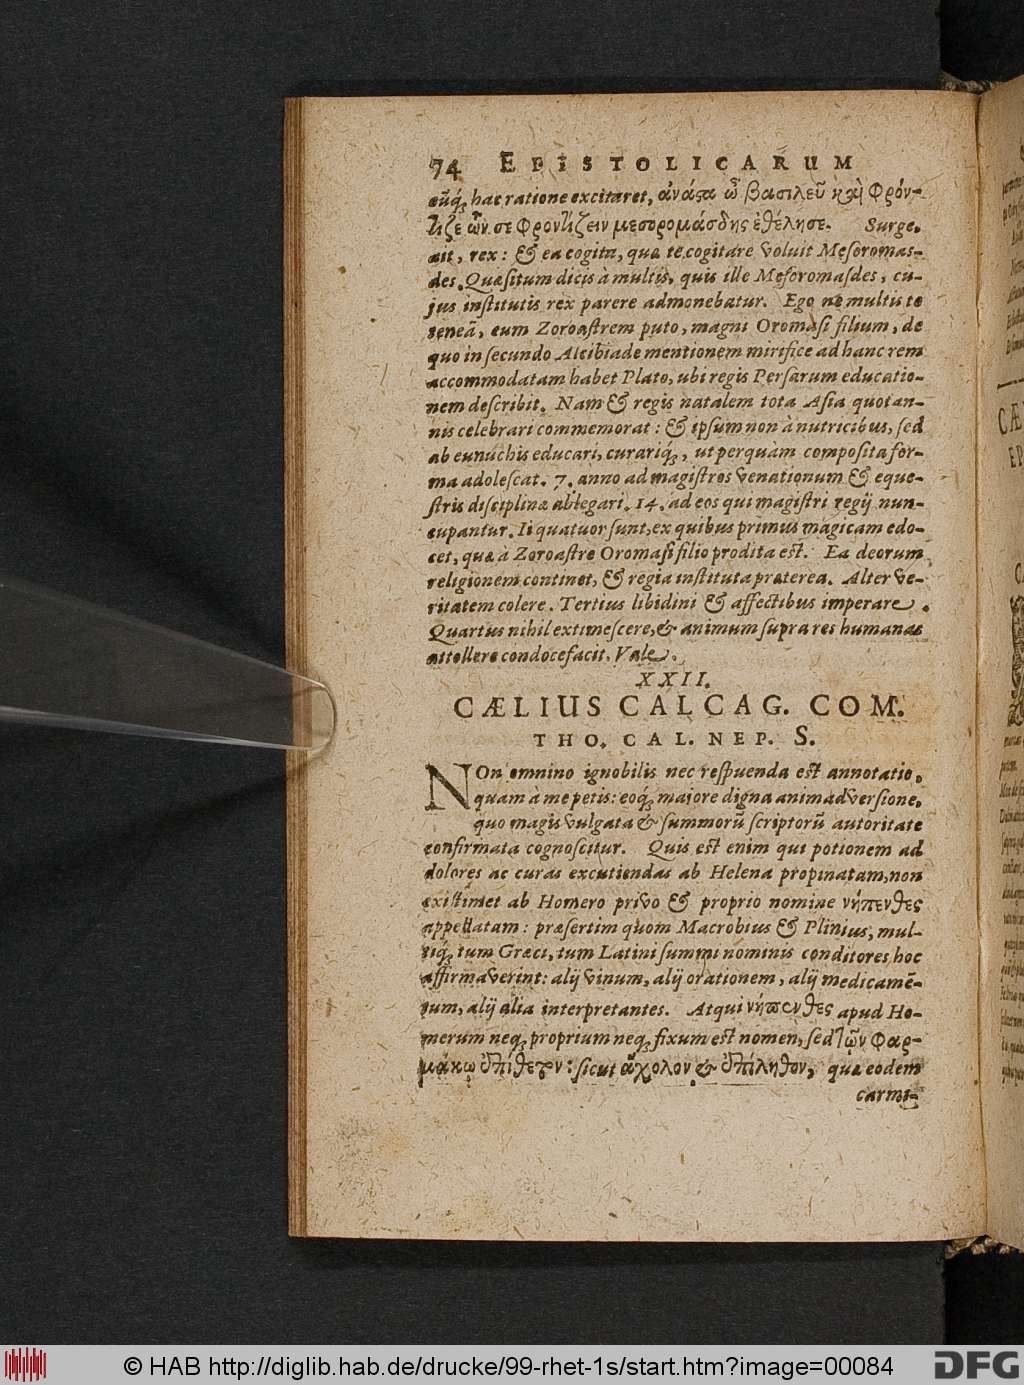 74 EPISTOLICARUM
eũq́; hac ratione excitaret, ἀνάςα ὦ βασιλεῦ καὶ φρόν-
τιζε ὧν σε φροντίζειν μεσορομάσδης ἐθέλησε. Surge,
ait, rex: & ea cogita, quæ te cogitare voluit Mesoromas-
des. Quæsitum dicis à multis, quis ille Mesoromasdes, cu-
jus institutis rex parere admonebatur. Ego ne multis te
teneã, eum Zoroastrem puto, magni Oromasi filium, de
quo in secundo Alcibiade mentionem mirifice ad hanc rem
accommodatam habet Plato, ubi regis Persarum educatio-
nem describit. Nam & regis natalem tota Asia quotan-
nis celebrari commemorat: & ipsum non à nutricibus, sed
ab eunuchis educari, curariq́;, ut perquàm composita for-
ma adolescat. 7. anno ad magistros venationum & eque-
stris disciplinæ ablegari. 14. ad eos qui magistri regij nun-
cupantur. Ii quatuor sunt, ex quibus primus magicam edo-
cet, quæ à Zoroastre Oromasi filio prodita est. Ea deorum
religionem continet, & regia instituta præterea. Alter ve-
ritatem colere. Tertius libidini & affectibus imperare.
Quartus nihil extimescere, & animum supra res humanas
attollere condocefacit. Vale.
XXII.
CÆLIUS CALCAG. COM.
THO. CAL. NEP. S.
NOn omnino ignobilis nec respuenda est annotatio,
quam à me petis: eoq́; majore digna animadversione,
quo magis vulgata & summorũ scriptorũ autoritate
confirmata cognoscitur. Quis est enim qui potionem ad
dolores ac curas excutiendas ab Helena propinatam, non
existimet ab Homero privo & proprio nomine νήπενθες
appellatam: præsertim quom Macrobius & Plinius, mul-
tiq́; tum Græci, tum Latini summi nominis conditores hoc
affirmaverint: alij vinum, alij orationem, alij medicamẽ-
tum, alij alia interpretantes. Atqui νήπενθες apud Ho-
merum neq; proprium neq; fixum est nomen, sed τῶν φαρ-
μάκῳ ἐπίθετον: sicut ἄχολον & ἐπίληθον, quæ eodem
carmi-
© HAB http://diglib.hab.de/drucke/99-rhet-1s/start.htm?image=00084
DFG